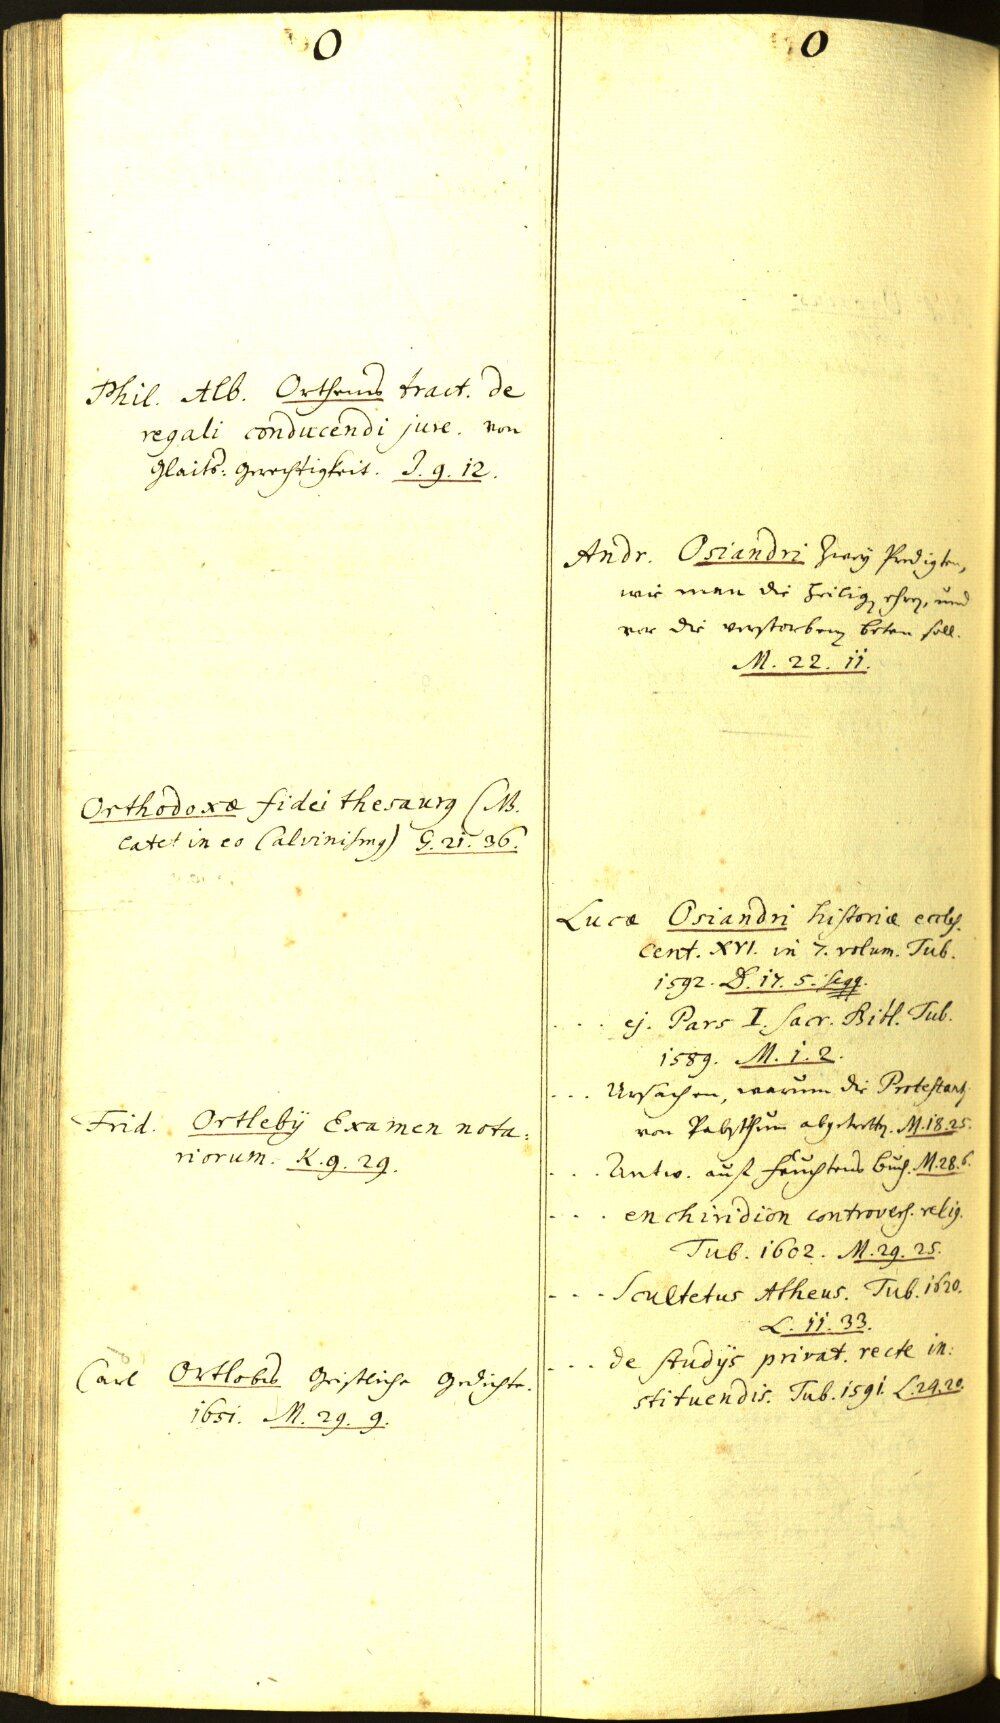 O
Phil. Alb. Orthens tract. de
regali conducendi jure. von
Glaits: gerechtigkeit. J. 9. 12.
Orthodoxæ fidei thesaurg (NB.
latet in eo Calvinismg) G. 21. 36.
Frid. Ortlebij Examen nota:
riorum. K. 9. 29.
Carl Ortlobs Geistliche Gedichte.
1651. M. 29. 9.
O
Andr. Osiandri Zwey Predigten,
wie man die heilig ehren, und
vor die verstorben beten soll.
M. 22. 11.
Lucæ Osiandri historiæ eccles.
Cent. XVI. in 7. volum. Tub.
1592. D. 17. 5. seqq.
. . . ej. Pars I. sacr. Bibl. Tub.
1589. M. 1. 2.
. . . Ursachen, warum die Protestant
von Pabsthum abgetretten. M. 18. 25.
. . . Antw. auf Feuchtens buch. M. 28. 6.
. . . enchiridion controvers. relig.
Tub. 1602. M. 29. 25.
. . . Scultetus Atheus. Tub. 1620.
L. 11. 33.
. . . de studijs privat. recte in:
stituendis. Tub. 1591. L. 24. 20.